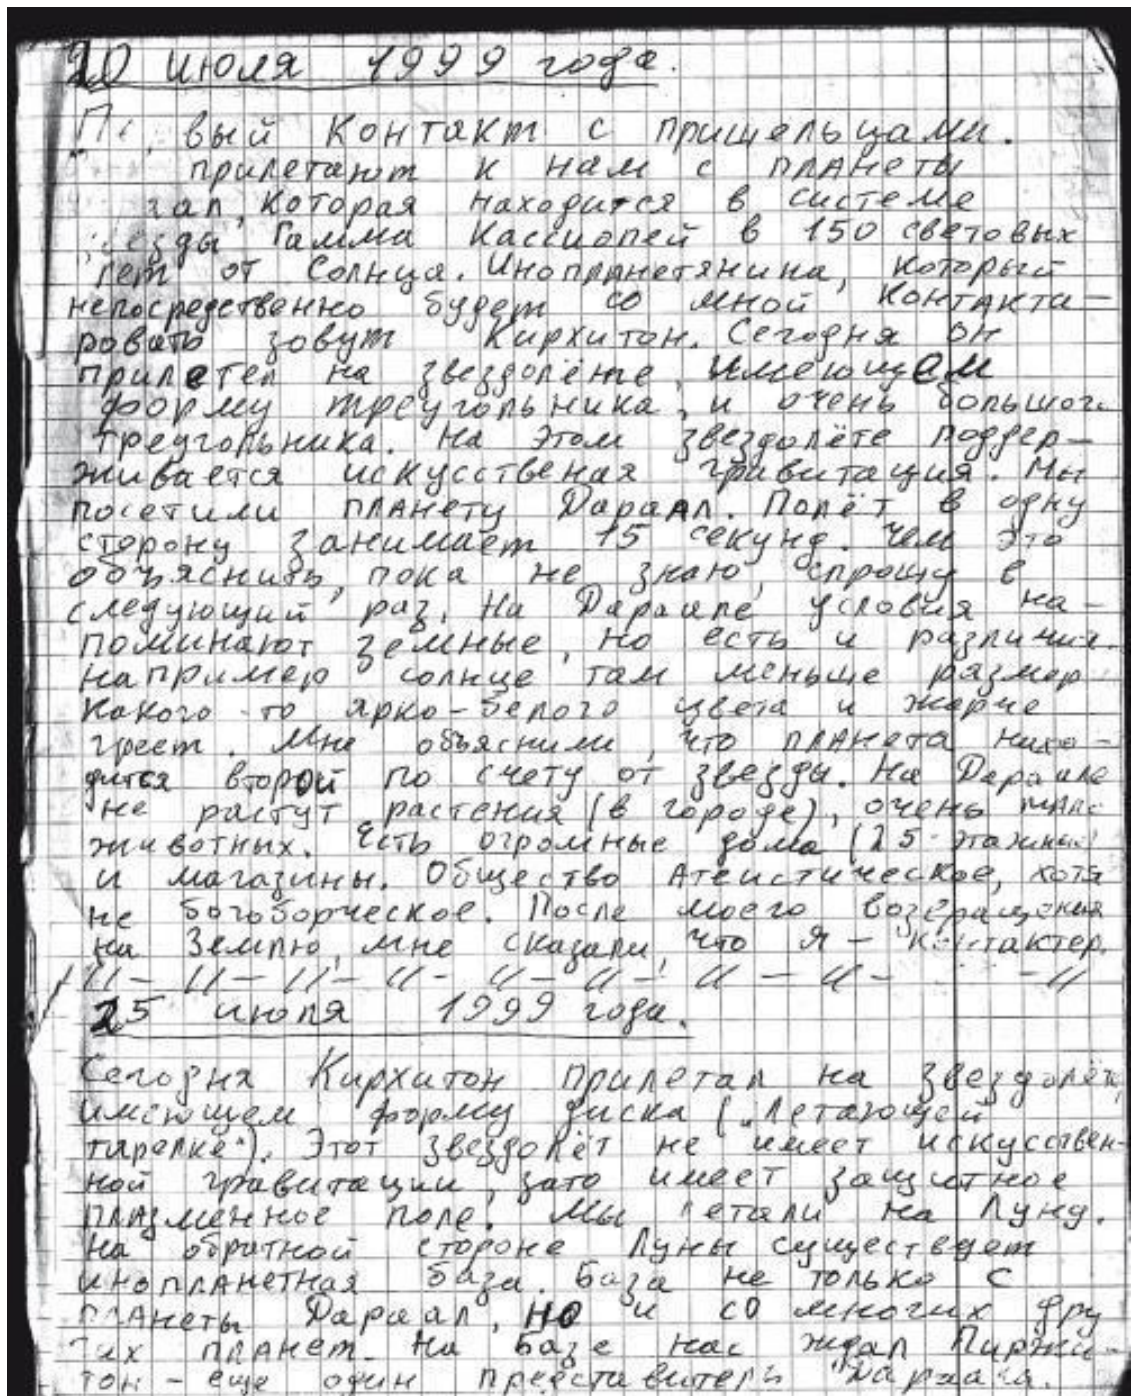 20 июля 1999 года.
вый контакт с пришельцами.
прилетают к нам с планеты
которая находится в системе
Гамма Кассиопей в 150 световых
лет от Солнца. Инопланетянина, который
непосредственно будет со мной контакти-
ровать зовут Кирхитон. Сегодня он
прилетел на звездолёте, имеющем
форму треугольника, и очень большого
треугольника. На этом звездолёте поддер-
живается искусственая гравитация. Мы
посетили планету Дараал. Полёт в одну
сторону занимает 15 секунд. Чем это
объяснить, пока не знаю, спрошу в
следующий раз. На Дараале условия на-
поминают земные, но есть и различия.
например солнце там меньше размер
какого-то ярко-белого цвета и жарче
греет. Мне объяснили, что планета нахо-
дится второй по счету от звезды. На Дараале
не растут растения (в городе), очень мало
животных. Есть огромные дома (25-этажные
и магазины. Общество Атеистическое, хотя
не богоборческое. После моего возвращения
на Землю, мне сказали, что я - контактер.
-//-//-//-//-//-//-//-//- -//
25 июля 1999 года.
Сегодня Кирхитон прилетал на звездолёте,
имеющем форму диска ("летающей
тарелке"). Этот звездолёт не имеет искусствен-
ной гравитации, зато имеет защитное
плазменное поле. Мы летали на Луну.
на обратной стороне Луны существует
инопланетная база. База не только с
планеты Дараал, но и со многих дру
гих планет. На базе нас ждал Пиржи-
тон - еще один представитель Дараала.